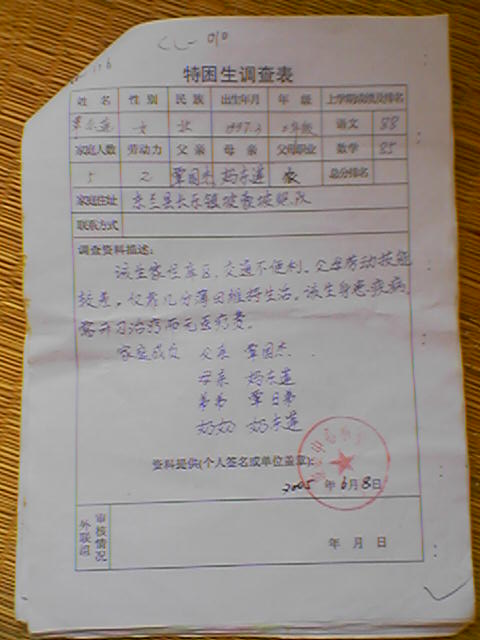 CL-010
特困生调查表
姓 名 性 别 民 族 出生年月 年 级 上学期成绩及排名
女 壮 1997.3 二年级 语文 88
家庭人数 劳动力 父 亲 母 亲 父母职业 数学 85
5 2 覃国杰 农 总分排名
家庭住址 东兰县长乐镇
联系方式
调查资料描述:
该生家在库区,交通不便利。父母劳动技能
较差,仅靠几分薄田维持生活。该生身患疾病,
需开刀治疗而无医疗费。
家庭成员 父亲 覃国杰
母亲
弟弟 覃日弟
奶奶
资料提供(个人签名或单位盖章):
2005 年 6 月 8 日
外联部 审核情况
年 月 日